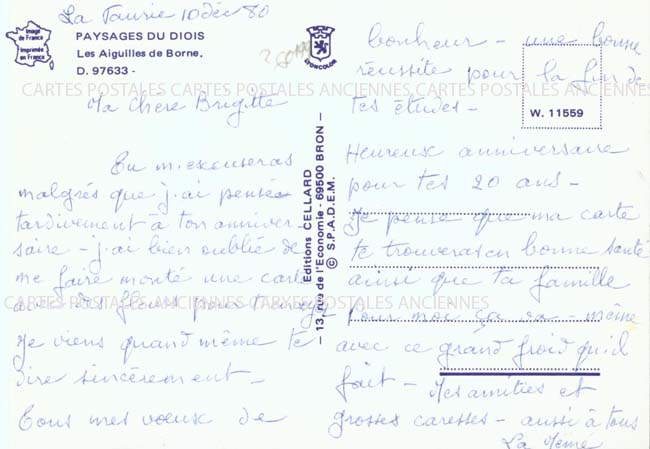 La Faurie 10 déc 80
Image
de France
Imprimée
en France
PAYSAGES DU DIOIS
Les Aiguilles de Borne.
D. 97633 -
LYONCOLOR
CARTES POSTALES ANCIENNES CARTES POSTALES ANCIENNES CARTES POSTALES ANCIENNES
Ma Chère Brigitte
Tu m'excuseras
malgrés que j'ai pensée
tardivement à ton anniver-
saire - j'ai bien oublié de
me faire monté une carte
avec des fleurs pour
Je viens quand même te
dire sincèrement -
Tous mes voeux de
Editions CELLARD
13, rue de l'Economie - 69500 BRON -
© S.P.A.D.E.M.
bonheur - une bonne
réussite pour la fin de
tes études -
W. 11559
Heureux anniversaire
pour tes 20 ans -
Je pense que ma carte
te trouveras en bonne santé
ainsi que ta famille
CARTES POSTALES ANCIENNES CARTES POSTALES ANCIENNES
Pour moi ça va - même
avec ce grand froid qu'il
fait - Mes amitiés et
grosses caresses - aussi à tous
La Mémé